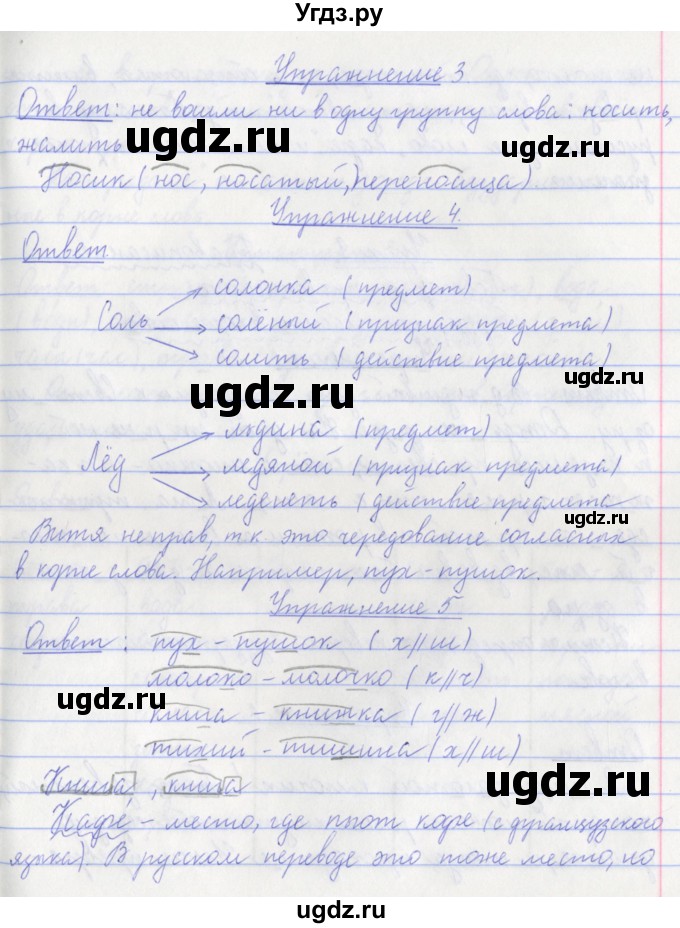 Угдз.ру
Упражнение 3
Ответ: не вошли ни в одну группу слова: носить,
жалить
ugdz.ru ugdz.ru
Носик (нос, носатый, переносица)
Упражнение 4.
Ответ.
солонка (предмет)
Соль солёный (признак предмета)
солить (действие предмета)
ugdz.ru ugdz.ru
льдина (предмет)
Лёд ледяной (признак предмета)
леденеть (действие предмета
ugdz.ru
Витя не прав, т к это чередование согласных
в корне слова. Например, пух - пушок.
Упражнение 5
Ответ: пух - пушок (х//ш)
молоко - молочко (к//ч)
ugdz.ru
книга - книжка (г//ж)
тихий - тишина (х//ш)
ugdz.ru
Книга, книга
Кафе - место, где пьют кофе (с французского
языка). В русском переводе это тоже место, но
ugdz.ru